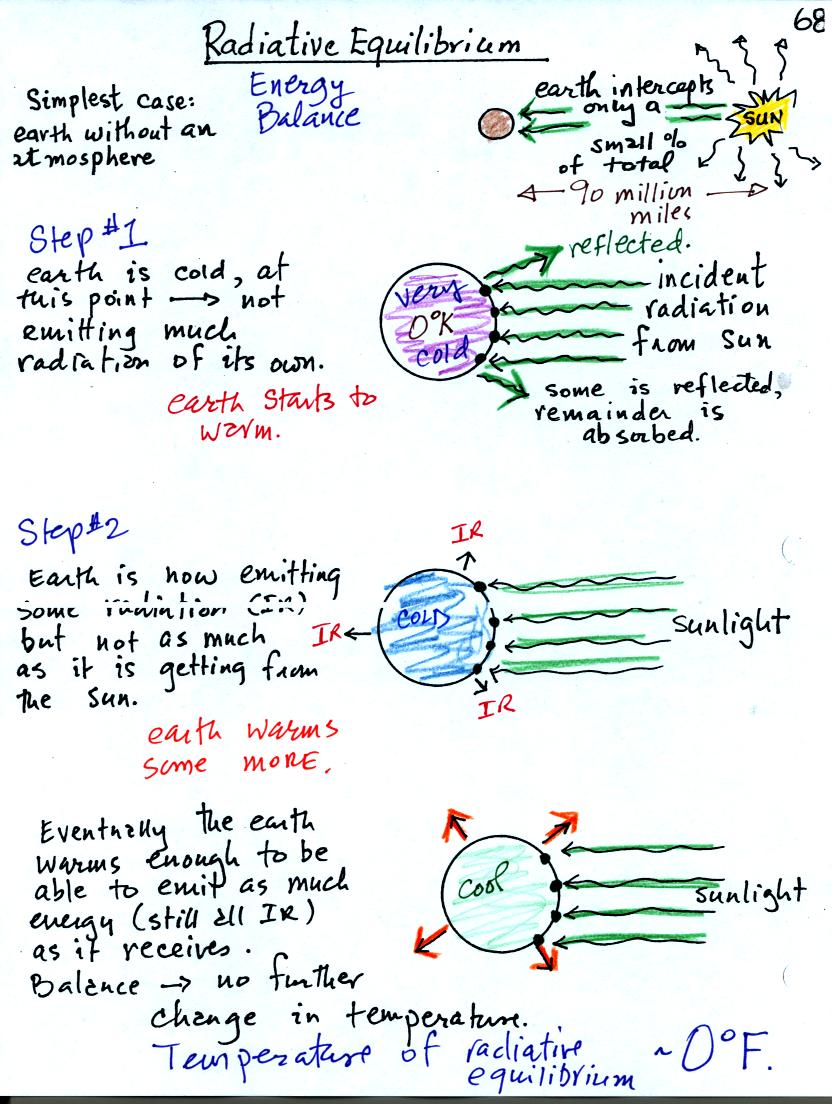 68
Radiative Equilibrium
Energy
Balance
Simplest case:
earth without an
atmosphere
earth intercepts
only a
small %
of total
SUN
90 million
miles
Step #1
earth is cold, at
this point → not
emitting much
radiation of its own.
earth starts to
warm.
very
0°K
cold
reflected.
incident
radiation
from sun
some is reflected,
remainder is
absorbed.
Step #2
Earth is now emitting
some radiation (IR)
but not as much
as it is getting from
the sun.
earth warms
some MORE.
IR
COLD
IR
IR
sunlight
Eventually the earth
warms enough to be
able to emit as much
energy (still all IR)
as it receives.
Balance → no further
change in temperature.
cool
sunlight
Temperature of radiative
equilibrium
~0°F.